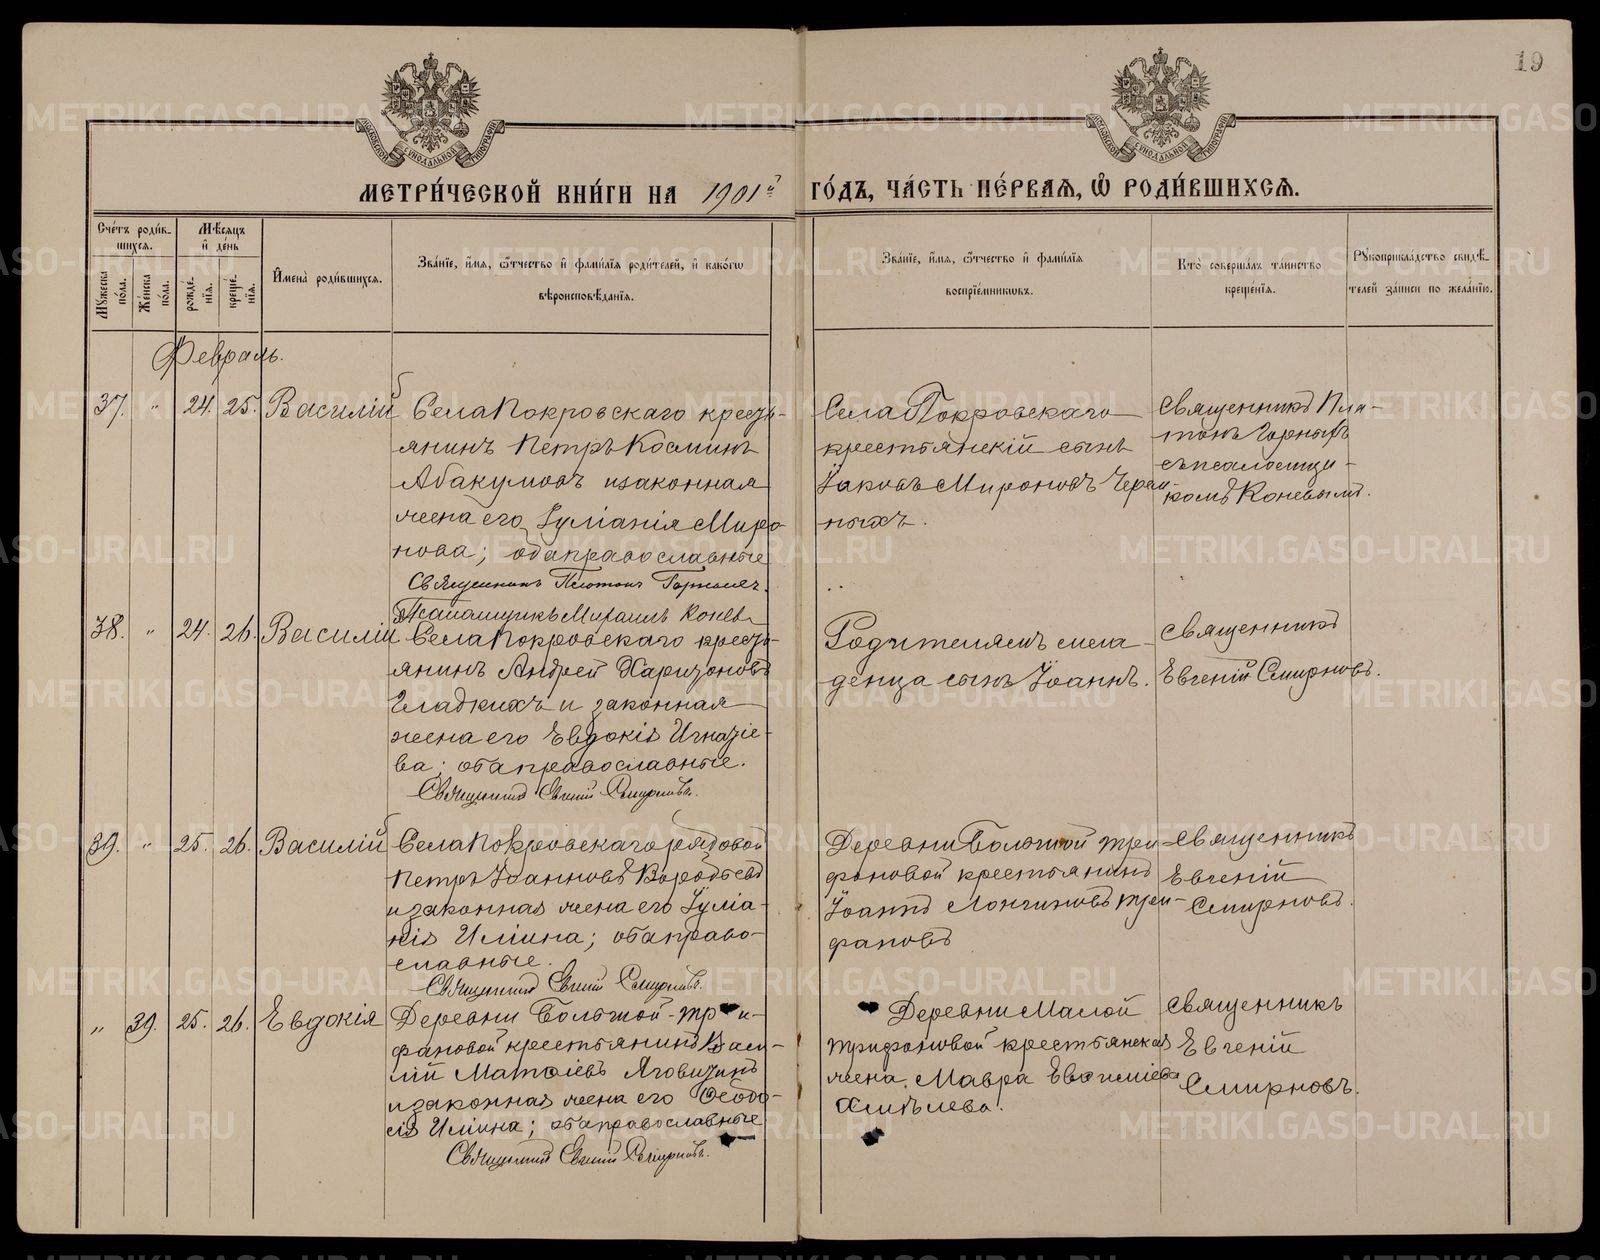 19
МОСКОВСКОЙ СѴНОДАЛЬНОЙ ТИПОГРАФІИ
МОСКОВСКОЙ СѴНОДАЛЬНОЙ ТИПОГРАФІИ
МЕТРИ́ЧЕСКОЙ КНИ́ГИ НА 1901й ГО́ДЪ, ЧА́СТЬ ПЕ́РВАѦ, Ѽ РОДИ́ВШИХСѦ.
Сче́тъ роди́в-
шихсѧ.
Мѣ́сѧцъ
и҆ де́нь
Мꙋжеска
по́ла.
Же́нска
по́ла.
рожде́-
нїѧ.
креще́-
нїѧ.
И҆мена̀ роди́вшихсѧ.
Зва́нїе, и҆́мѧ, ѻ҆́тчество и҆ фами́лїѧ роди́телей, и҆ како́гѡ
вѣроисповѣ́данїѧ.
Зва́нїе, и҆́мѧ, ѻ҆́тчество и҆ фами́лїѧ
воспрїе́мникѡвъ.
Кто̀ соверша́лъ та́инство
креще́нїѧ.
Рꙋкоприкла́дство свидѣ́-
телей за́писи по жела́нїю.
Февраль.
37. „ 24. 25. Василій
Села Покровскаго кресть-
янинъ Петръ Косминъ
Абакумовъ и законная
жена его Іуліанія Миро-
нова; оба православные
Священникъ Платонъ Горныхъ.
Псаломщикъ Михаилъ Конев
Села Покровскаго
крестьянскій сынъ
Іаковъ Мироновъ Черем-
ныхъ.
Священникъ Пла-
тонъ Горныхъ
съ псаломщи-
комъ Коневымъ.
38. „ 24. 26. Василій
Села Покровскаго кресть-
янинъ Андрей Харитоновъ
Гладкихъ и законная
жена его Евдокія Игнатіе-
ва; оба православные.
Священникъ Евгеній Смирновъ.
Родителямъ мла-
денца сынъ Іоаннъ.
Священникъ
Евгеній Смирновъ.
39. „ 25. 26. Василій
Села Покровскаго рядовой
Петръ Іоанновъ Воробьевъ
и законная жена его Іуліа-
нія Илiина; оба право-
славные.
Священникъ Евгеній Смирновъ.
Деревни Большой Три-
фоновой крестьянинъ
Іоаннъ Лонгиновъ Три-
фановъ
Священникъ
Евгеній
Смирновъ.
„ 39. 25. 26. Евдокія
Деревни Большой-Три-
фановой крестьянинъ Васи-
лій Матѳіевъ Яговитинъ
и законная жена его Ѳеодо-
сія Илiина; оба православные
Священникъ Евгеній Смирновъ.
Деревни Малой
Трифоновой крестьянская
жена Мавра Евѳиміева
Хмѣлева.
Священникъ
Евгеній
Смирновъ.
METRIKI.GASO-URAL.RU